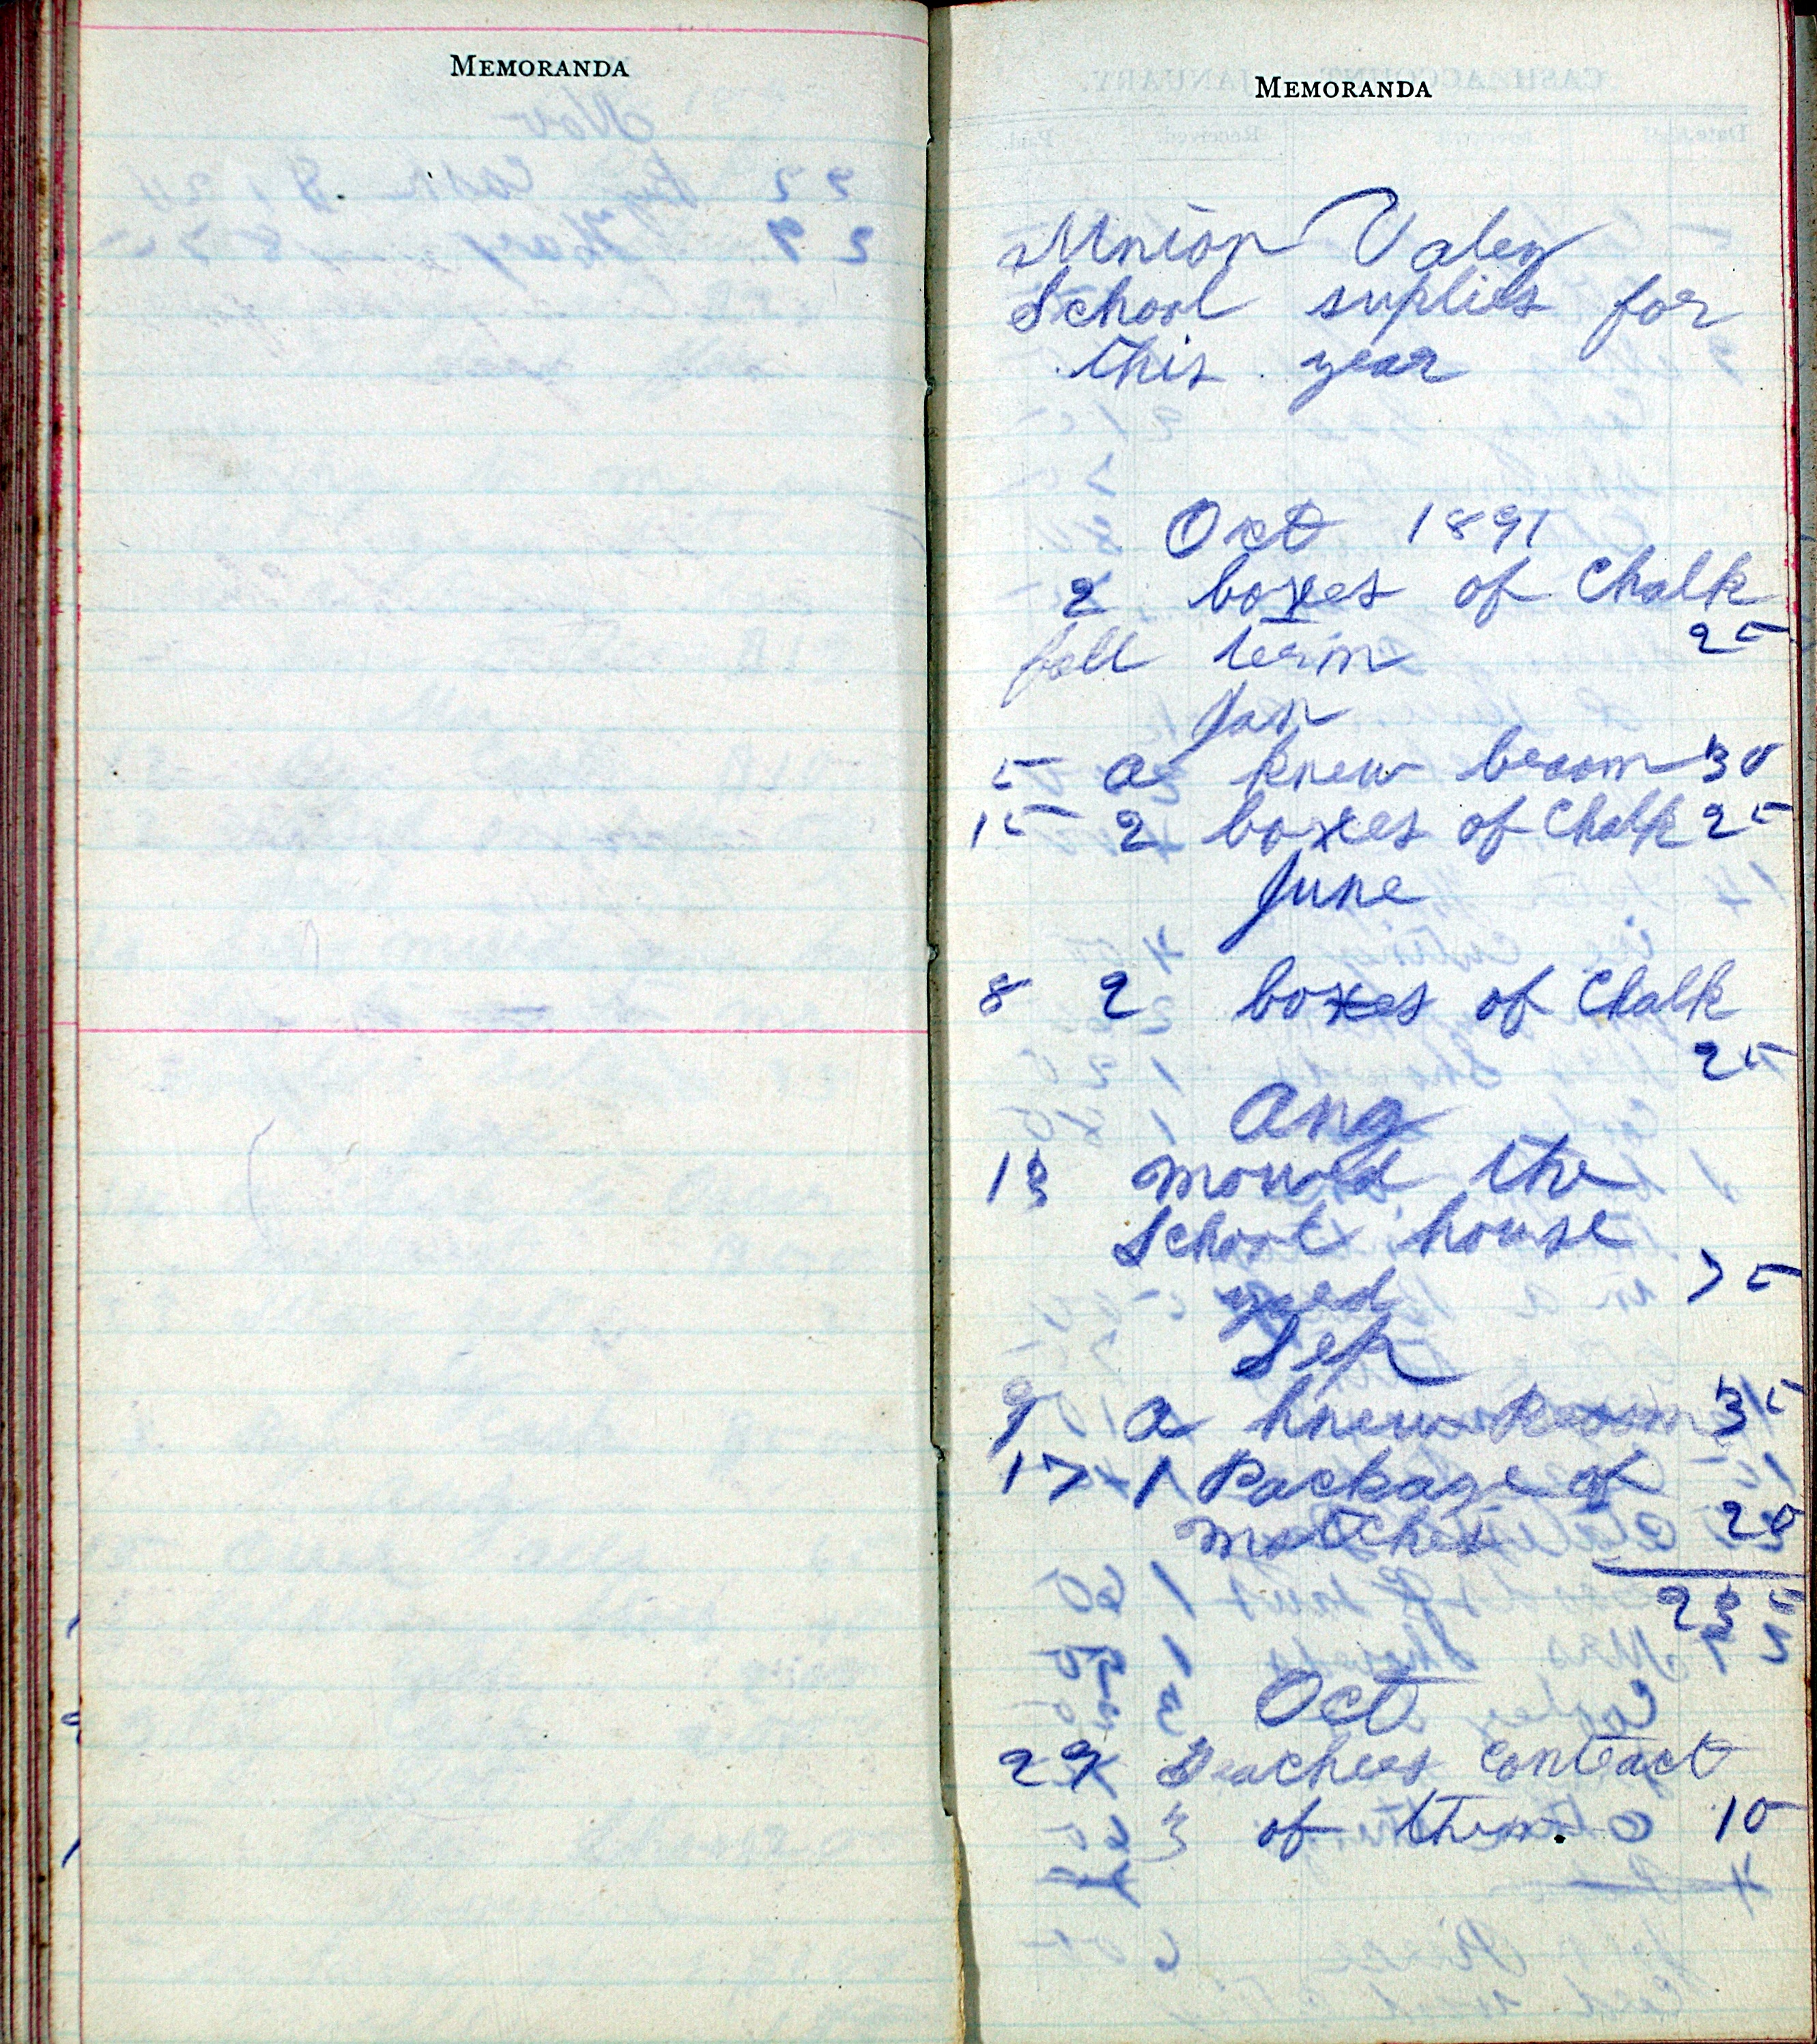 MEMORANDA
MEMORANDA
Union Valey
School suplies for
this year
Oct 1891
2 boxes of Chalk
fall term 25
Jan
5 a knew broom 30
15 2 boxes of Chalk 25
June
8 2 boxes of Chalk
25
Aug
13 mowed the
School house
yard 75
Sep
9 a knew Broom 35
17 1 Package of
matches 20
235
Oct
29 Teachers contract
3 of them. 10